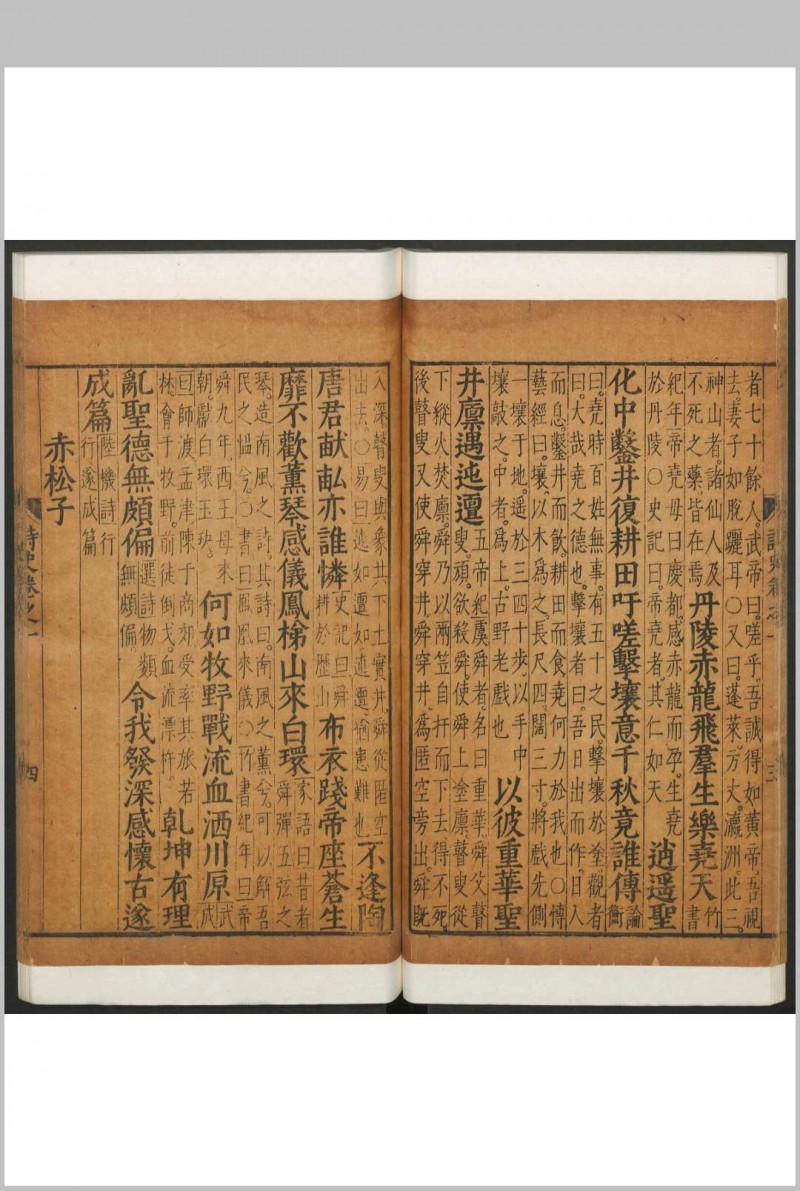 者七十餘人。武帝曰。嗟乎。吾誠得如黃帝。吾視
去。妻子如脫躧耳○又曰。蓬萊。方丈。瀛洲。此三
神山者。諸仙人及
不死之藥。皆在焉
丹陵赤龍飛羣生樂堯天
竹
書
紀年帝堯母曰慶都。感赤龍而孕。生堯
於丹陵○史記曰帝堯者。其仁如天
逍遥聖
化中鑿井復耕田吁嗟擊壤意千秋竟誰傳
論
衡
曰。堯時百姓無事。有五十之民。擊壤於塗。觀者
曰。大哉堯之德也。擊壤者曰。吾日出而作。日入
而息。鑿井而飲。耕田而食。堯何力於我也○傅
藝經曰。壤。以木爲之。長尺四。闊三寸。將戲先側
一壤于地。遥於三四十步。以手中
壤敲之。中者。爲上。古野老戲也
以彼重華聖
井廪遇迍邅
五帝紀虞舜者。名曰重華。舜父瞽
叟。頑。欲殺舜。使舜上塗廪。瞽叟從
下縱火焚廪。舜乃以兩笠自扞而下去得不死
後瞽叟又使舜穿井。舜穿井。爲匿空旁出。舜既
三
入深瞽叟與象共下土實井。舜從匿空
出去。○易曰。迍如邅如。迍邅。猶患難也
不逢陶
唐君献畝亦誰憐
史記曰。舜
耕於歷山
布衣踐帝座蒼生
靡不歡薰琴感儀鳳梯山來白環
家語曰昔者
舜彈五弦之
琴。造南風之詩。其詩曰。南風之薰兮。可以解吾
民之慍兮。○書曰鳳凰來儀○竹書紀年曰帝
舜九年。西王母來
朝。獻白環玉玦。
何如牧野戰流血洒川原
武
成
曰師渡孟津陳于商郊受率其旅若
林。會于牧野。前徒倒戈。血流漂杵。
乾坤有理
亂聖德無頗偏
選詩物類
無頗偏。
令我發深感懷古遂
成篇
陸機詩行
行遂成篇
赤松子
詩史卷之一
四